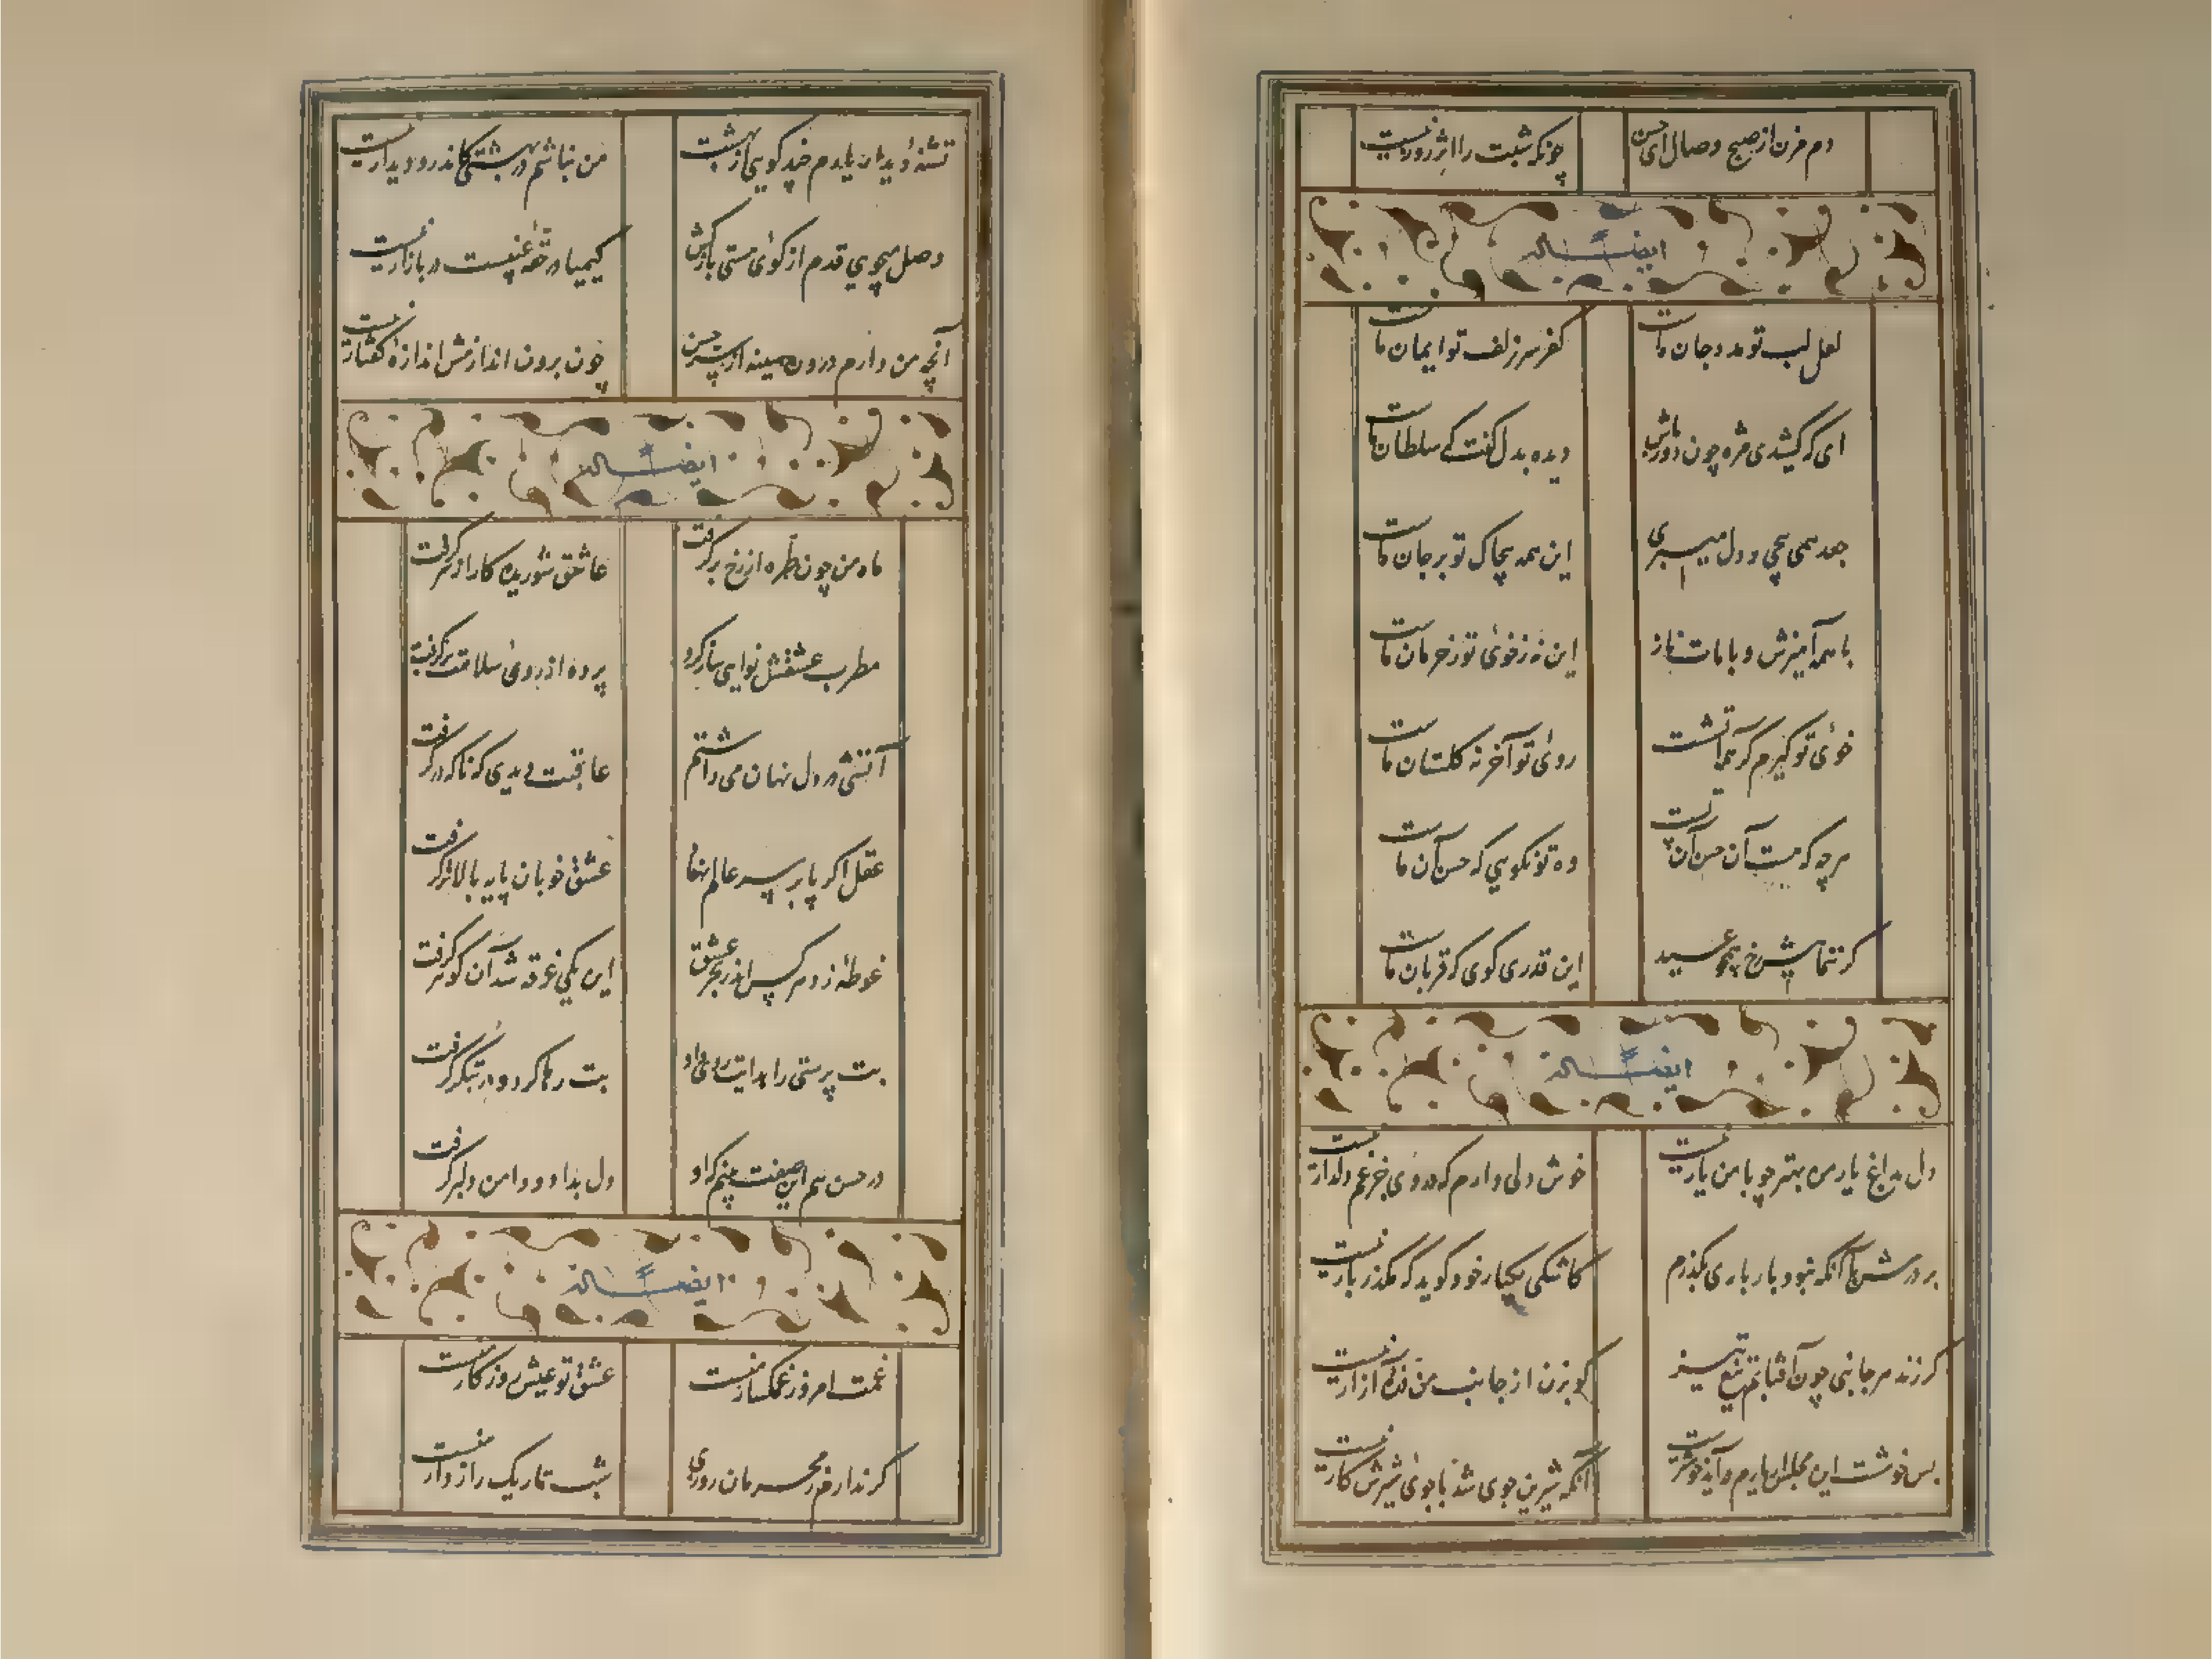 دم مزن از صبح وصال ای حسن چونکه شبت را اثر روز نیست
ایضاً له
لعل لب تو مدد جان ماست کفر سر زلف تو ایمان ماست
ای که کشیدی مژه چون دورباش دیده بدل گفت که سلطان ماست
جعد همی پیچی و دل میبری این همه پیچاک تو بر جان ماست
با همه آمیزش و با مات ناز این نه ز خوی تو ز حرمان ماست
خوی تو گیرم که همه آتشست روی تو آخر نه گلستان ماست
هرچه که هست آن حسن آن تست وه تو نگویی که حسن آن ماست
گر ننمایش رخ همچو عید این قدری گوی که قربان ماست
ایضاً له
دل بداغ یار من بهتر چو با من یار نیست خوش دلی دارم که در وی جز غم دلدار نیست
بر درش با آنکه نبود بار باری بگذرم کاشکی یکبار خود گوید که مگذر بار نیست
گر زند هر جانبی چون آفتابم تیغ تیز گو بزن از جانب من ذره آزار نیست
بس خوشست این مجلس یارم در آید خوشترست آنکه شیرین جوی شد با جوی شیرش کار نیست
تشنه دیدار یارم چند گویی از بهشت من نباشم در بهشتی کاندرو دیدار نیست
وصل میجویی قدم از کوی هستی بازکش کیمیا در حقه غیبست در بازار نیست
آنچه من دارم درون سینه از سر حسن چون برون اندازمش اندازه گفتار نیست
ایضاً له
ماه من چون طره از رخ برگرفت عاشق شوریده کار از سر گرفت
مطرب عشقش نوایی ساز کرد پرده از روی سلامت برگرفت
آتشی در دل نهان می داشتم عاقبت دیدی که ناگه در گرفت
عقل اگر پا بر سر عالم نهاد عشق خوبان پایه بالاتر گرفت
غوطه زد هر کس اندر بحر عشق این یکی غرقه شد آن گوهر گرفت
بت پرستی را هدایت روی داد بت رها کرد و در بتگر گرفت
در حسن هم این صفت بینم که او دل بداد و دامن دلبر گرفت
ایضاً له
غمت امروز غمگسار منست عشق تو عیش روزگار منست
گر ندارم ز محرمان روزی شب تاریک رازدار منست